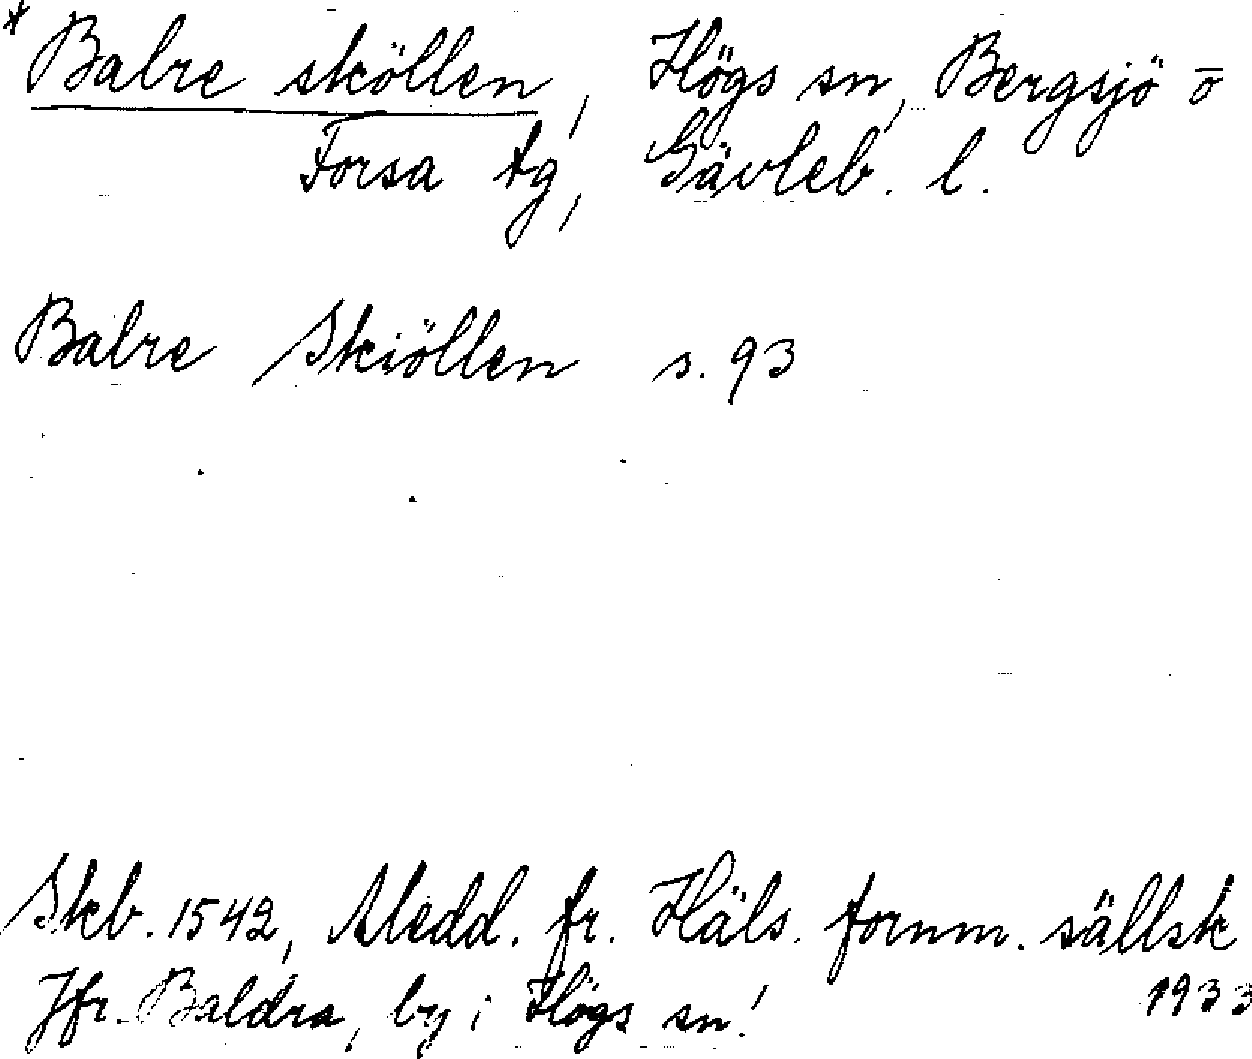 * Balre sköllen, Högs sn, Bergsjö o
Forsa tg, Gävleb. l.
Balre Skiöllen s. 93
Skb. 1542, Medd. fr. Häls. fornm. sällsk
1933
Jfr. Baldra, by i Högs sn!